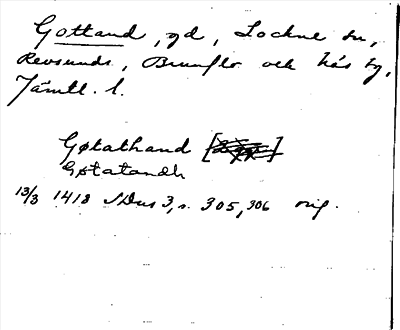 Gottand, gd, Lockne sn,
Revsunds, Brunflo och Näs tg,
Jämtl. l.
Gøtathand
Gøtatandh
13/3 1418 SDns 3, s. 305, 306 orig.